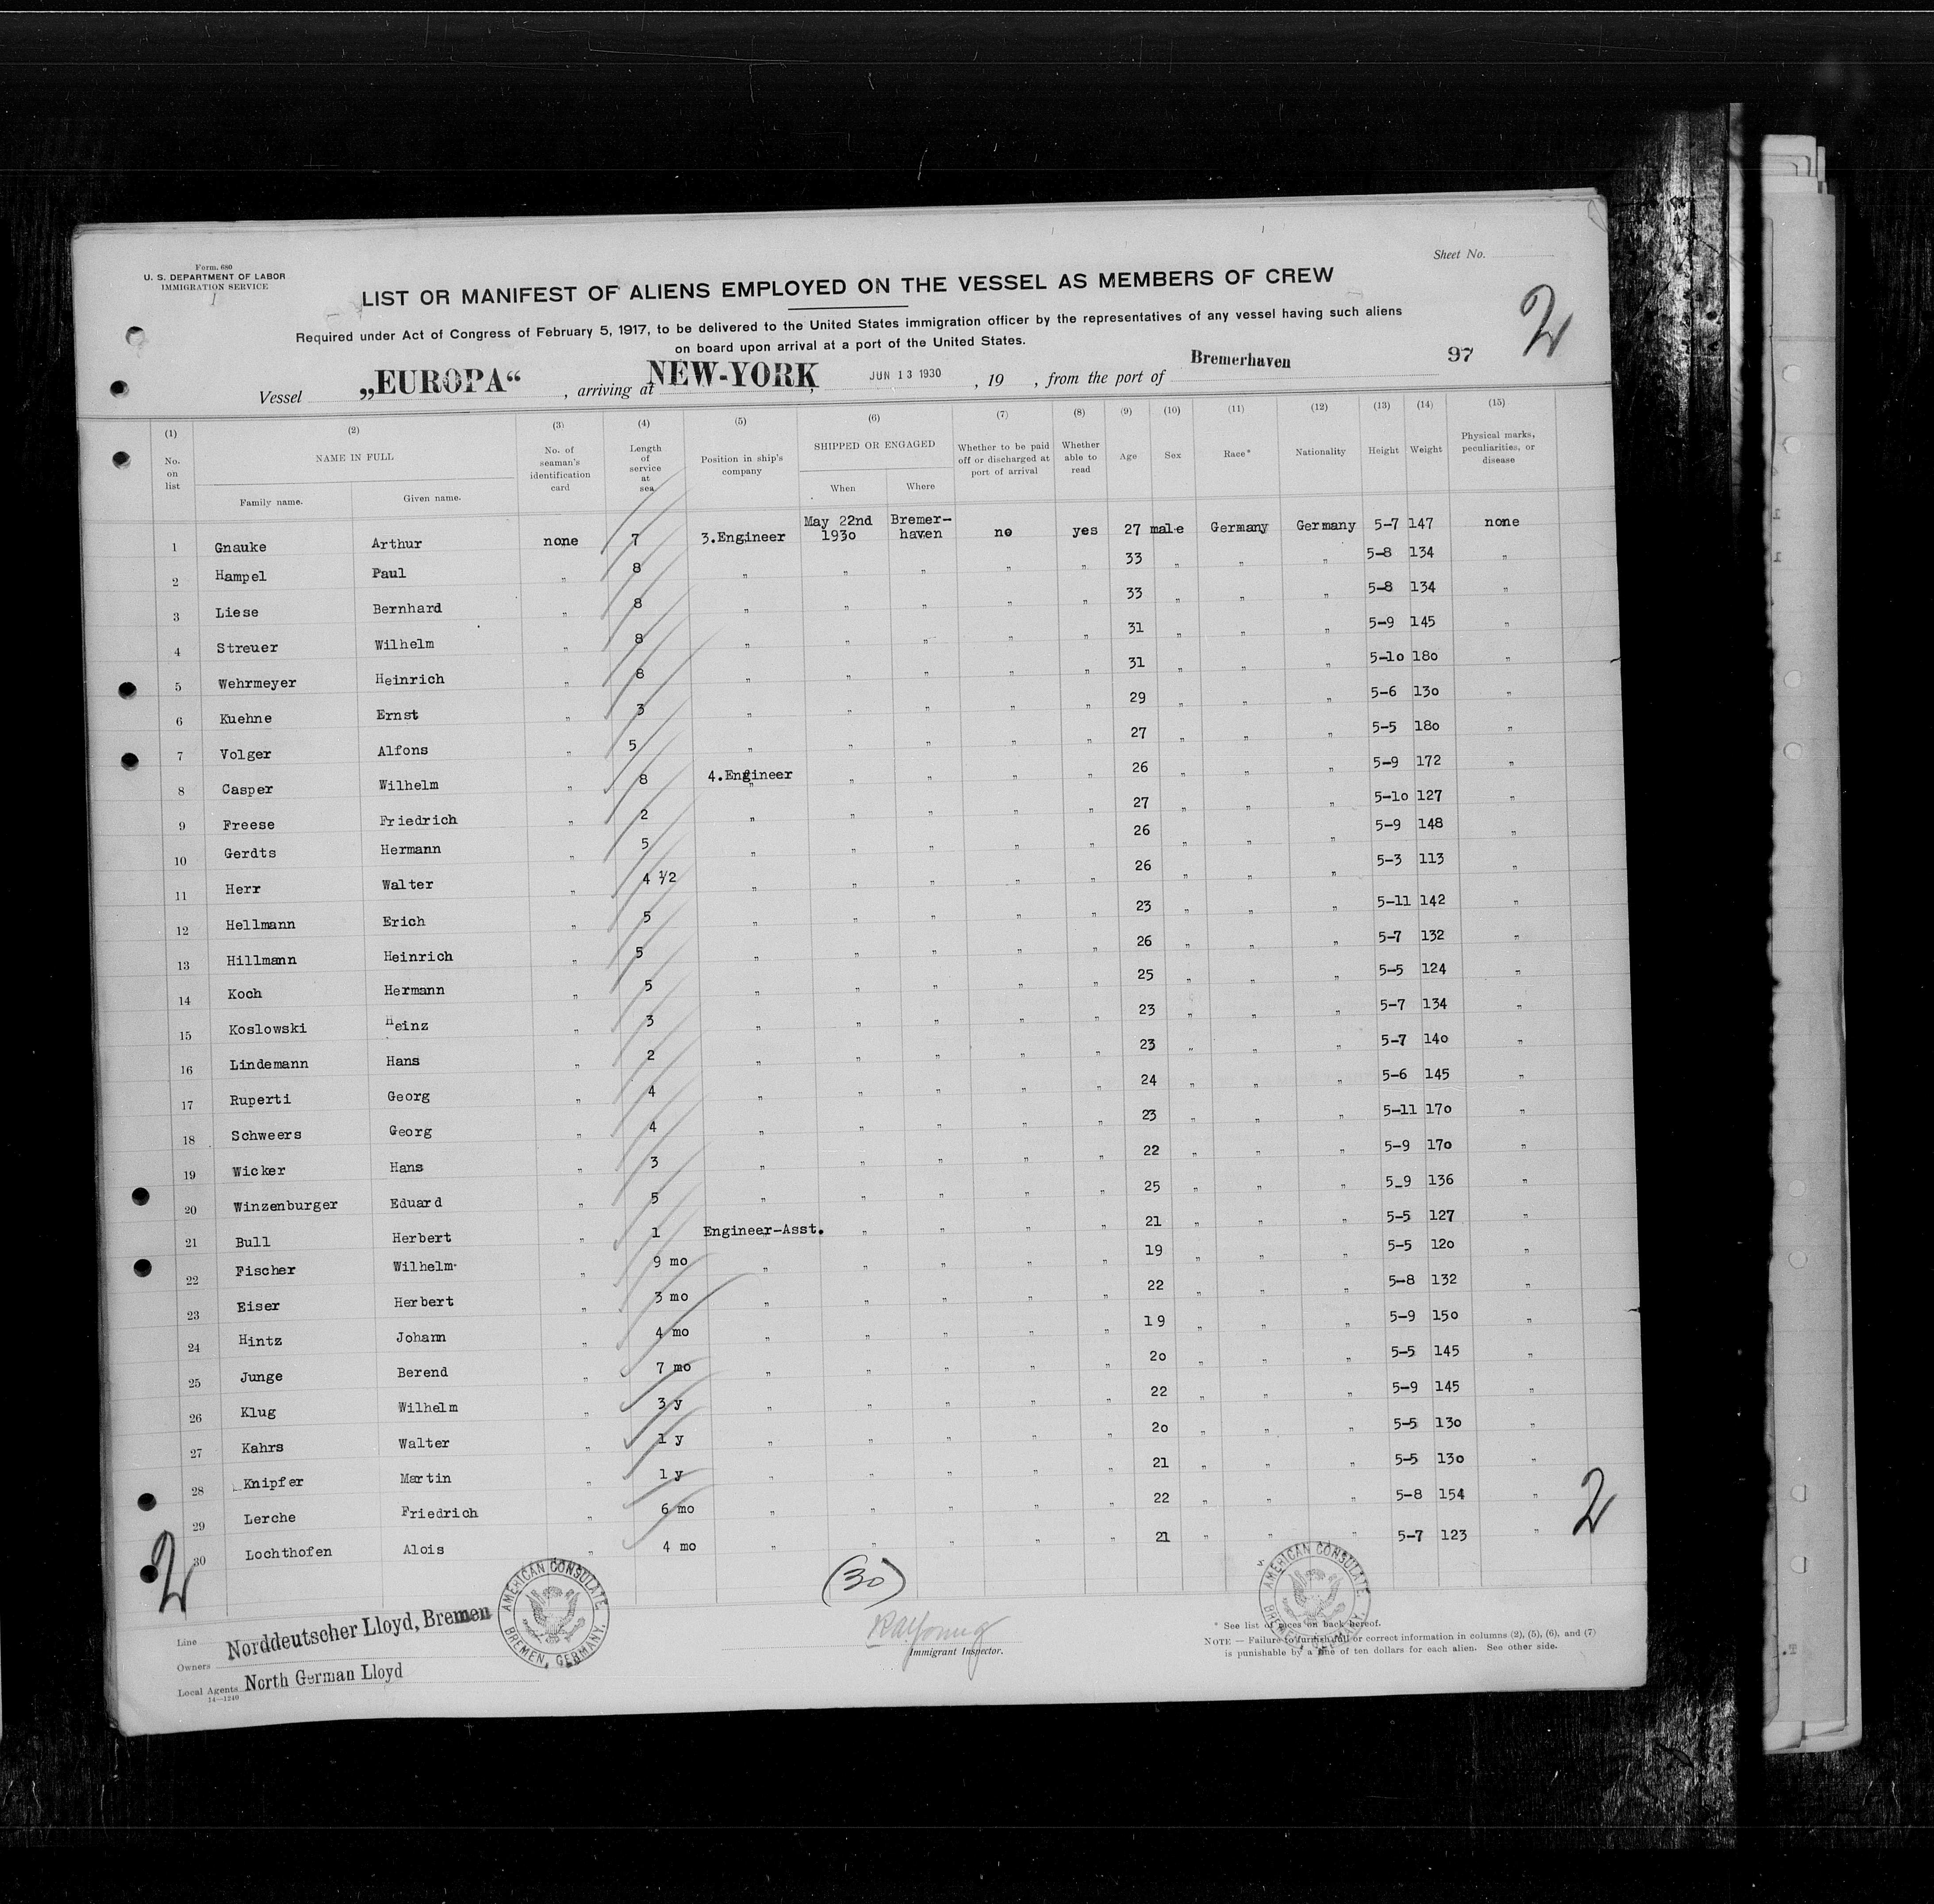 Form. 680
U. S. DEPARTMENT OF LABOR
IMMIGRATION SERVICE
Sheet No.
LIST OR MANIFEST OF ALIENS EMPLOYED ON THE VESSEL AS MEMBERS OF CREW
Required under Act of Congress of February 5, 1917, to be delivered to the United States immigration officer by the representatives of any vessel having such aliens
on board upon arrival at a port of the United States.
2
Vessel „EUROPA“, arriving at NEW-YORK, JUN 13 1930, 19 , from the port of Bremerhaven 97
(1) (2) (3) (4) (5) (6) (7) (8) (9) (10) (11) (12) (13) (14) (15)
No. on list NAME IN FULL Family name. Given name. No. of seaman's identification card Length of service at sea Position in ship's company SHIPPED OR ENGAGED When Where Whether to be paid off or discharged at port of arrival Whether able to read Age Sex Race* Nationality Height Weight Physical marks, peculiarities, or disease
1 Gnauke Arthur none 7 3.Engineer May 22nd 1930 Bremer-haven no yes 27 male Germany Germany 5-7 147 none
2 Hampel Paul " 8 " " " " " 33 " " " 5-8 134 "
3 Liese Bernhard " 8 " " " " " 33 " " " 5-8 134 "
4 Streuer Wilhelm " 8 " " " " " 31 " " " 5-9 145 "
5 Wehrmeyer Heinrich " 8 " " " " " 31 " " " 5-10 180 "
6 Kuehne Ernst " 3 " " " " " 29 " " " 5-6 130 "
7 Volger Alfons " 5 " " " " " 27 " " " 5-5 180 "
8 Casper Wilhelm " 8 4.Engineer " " " " 26 " " " 5-9 172 "
9 Freese Friedrich " 2 " " " " " 27 " " " 5-10 127 "
10 Gerdts Hermann " 5 " " " " " 26 " " " 5-9 148 "
11 Herr Walter " 4 1/2 " " " " " 26 " " " 5-3 113 "
12 Hellmann Erich " 5 " " " " " 23 " " " 5-11 142 "
13 Hillmann Heinrich " 5 " " " " " 26 " " " 5-7 132 "
14 Koch Hermann " 5 " " " " " 25 " " " 5-5 124 "
15 Koslowski Heinz " 3 " " " " " 23 " " " 5-7 134 "
16 Lindemann Hans " 2 " " " " " 23 " " " 5-7 140 "
17 Ruperti Georg " 4 " " " " " 24 " " " 5-6 145 "
18 Schweers Georg " 4 " " " " " 23 " " " 5-11 170 "
19 Wicker Hans " 3 " " " " " 22 " " " 5-9 170 "
20 Winzenburger Eduard " 5 " " " " " 25 " " " 5_9 136 "
21 Bull Herbert " 1 Engineer-Asst. " " " " 21 " " " 5-5 127 "
22 Fischer Wilhelm " 9 mo " " " " " 19 " " " 5-5 120 "
23 Eiser Herbert " 3 mo " " " " " 22 " " " 5-8 132 "
24 Hintz Johann " 4 mo " " " " " 19 " " " 5-9 150 "
25 Junge Berend " 7 mo " " " " " 20 " " " 5-5 145 "
26 Klug Wilhelm " 3 y " " " " " 22 " " " 5-9 145 "
27 Kahrs Walter " 1 y " " " " " 20 " " " 5-5 130 "
28 Knipfer Martin " 1 y " " " " " 21 " " " 5-5 130 "
29 Lerche Friedrich " 6 mo " " " " " 22 " " " 5-8 154 "
30 Lochthofen Alois " 4 mo " " " " " 21 " " " 5-7 123 "
2
2
(30)
AMERICAN CONSULATE, BREMEN, GERMANY.
AMERICAN CONSULATE, BREMEN, GERMANY.
Line
Owners Norddeutscher Lloyd, Bremen
Local Agents North German Lloyd
14—1240
Immigrant Inspector.
* See list of races on back hereof.
NOTE — Failure to furnish full or correct information in columns (2), (5), (6), and (7)
is punishable by a fine of ten dollars for each alien. See other side.